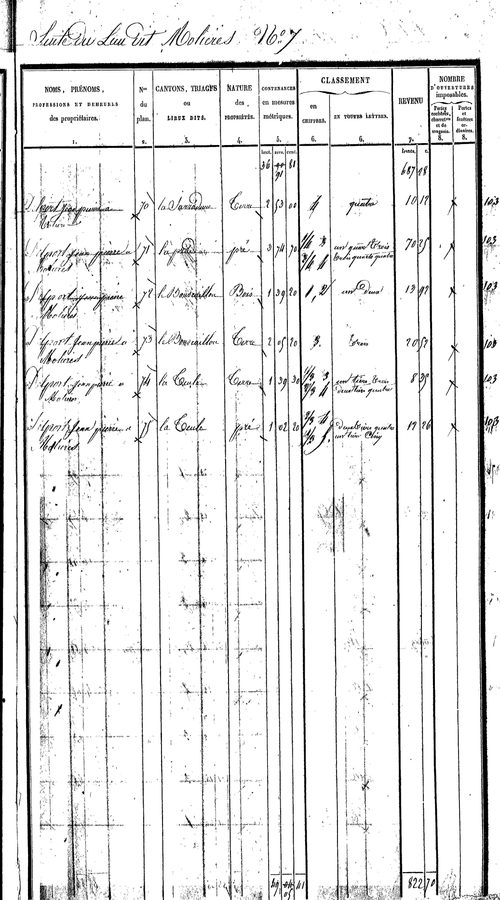 Suite du Lieu dit Molières N.º 7
NOMS, PRÉNOMS, PROFESSIONS ET DEMEURES des propriétaires. 1.
Nos du plan. 2.
CANTONS, TRIAGES ou LIEUX DITS. 3.
NATURE des PROPRIÉTÉS. 4.
CONTENANCES en mesures métriques. 5.
CLASSEMENT
en CHIFFRES. 6.
EN TOUTES LETTRES. 6.
REVENU 7.
NOMBRE D'OUVERTURES imposables.
Portes cochères, charretières et de magasin. 8.
Portes et fenêtres ordinaires. 8.
hect. ares. cent. francs. c.
36 91 81 687 08
Delport jean pierre a Molieres 70 Terre 2 53 00 4 quatre 10 12 103
Delport jean pierre a Molières 71 pré 3 74 70 1/4 3 3/4 4 un quart trois trois quarts quatre 70 25 103
Delport jean pierre Molières 72 Bois 1 39 20 1, 2 un Deux 13 92 103
Delport jean pierre a Molières 73 Terre 2 05 20 3. Trois 20 52 103
Delport jean pierre a Molieres 74 la Teule Terre 1 39 30 1/3 3 2/3 4 un tiers trois deux tiers quatre 8 35 103
Delport jean pierre a Molières 75 la Teule pré 1 02 20 2/3 4 1/3 5 deux tiers quatre un tiers Cinq 12 26 103
49 05 41 822 70